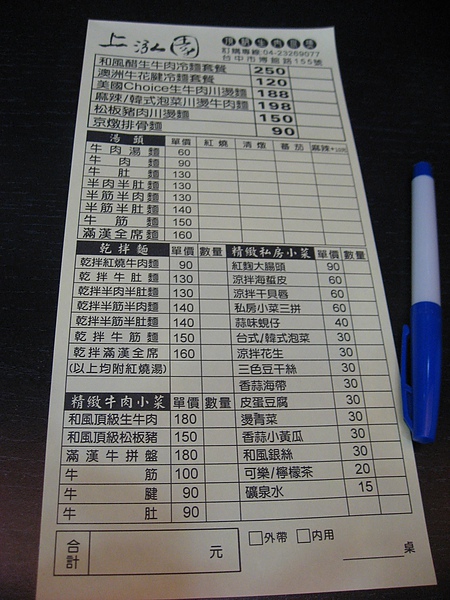 上泓園
訂購專線:04-23269077
台中市博館路155號
和風醋生牛肉冷麵套餐 250
澳洲牛花腱冷麵套餐 120
美國Choice生牛肉川燙麵 188
麻辣/韓式泡菜川燙牛肉麵 198
松板豬肉川燙麵 150
京燉排骨麵 90
湯頭 單價 紅燒 清燉 蕃茄 麻辣
牛肉湯麵 60
牛肉麵 90
牛肚麵 130
半肉半肚麵 130
半筋半肉麵 130
半筋半肚麵 140
牛筋麵 150
滿漢全席麵 160
乾拌麵 單價 數量 精緻私房小菜 單價 數量
乾拌紅燒牛肉麵 90 紅麴大腸頭 90
乾拌牛肚麵 130 涼拌海蜇皮 60
乾拌半肉半肚麵 130 涼拌干貝唇 60
乾拌半筋半肉麵 140 私房小菜三拼 60
乾拌半筋半肚麵 140 蒜味蜆仔 40
乾拌牛筋麵 150 台式/韓式泡菜 30
乾拌滿漢全席 160 涼拌花生 30
(以上均附紅燒湯) 三色豆干絲 30
香蒜海帶 30
精緻牛肉小菜 單價 數量 皮蛋豆腐 30
和風頂級生牛肉 180 燙青菜 30
和風頂級松板豬 150 香蒜小黃瓜 30
滿漢牛拼盤 180 和風銀絲 30
牛筋 100 可樂/檸檬茶 20
牛腱 90 礦泉水 15
牛肚 90
合計 元 □外帶 □內用
桌